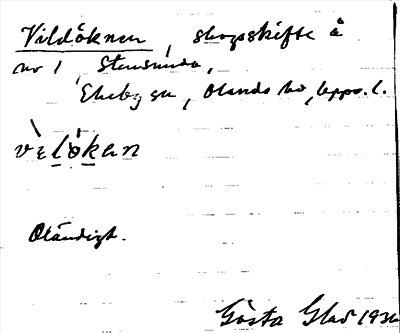 Vildöknen, skogsskifte å
nr 1 Stensunda,
Ekeby sn, Olands hd, Upps. l.
vèlö̀kan
Oländigt.
Gösta Glad 1936